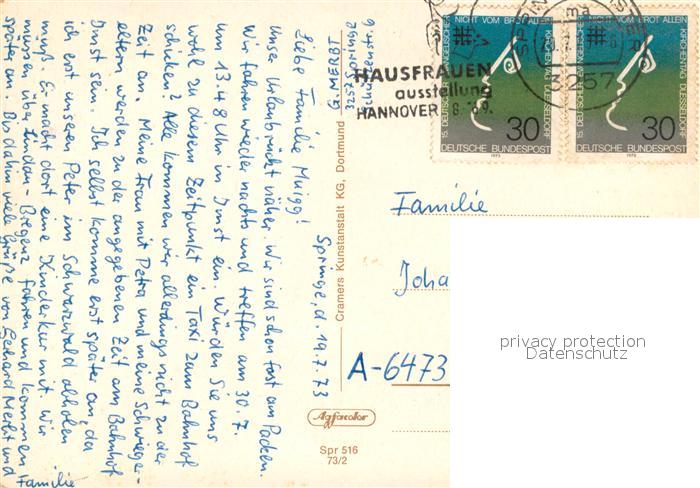 G. MERBT
3257 Springe
Springe, d. 19.7.73
Liebe Familie Muigg!
Unser Urlaub rückt näher. Wir sind schon fast am Packen.
Wir fahren wieder nachts und treffen am 30.7.
um 13.48 Uhr in Imst ein. Würden Sie uns
wohl zu diesem Zeitpunkt ein Taxi zum Bahnhof
schicken? Alle kommen wir allerdings nicht zu der
Zeit an. Meine Frau mit Petra und meine Schwieger-
eltern werden zu der angegebenen Zeit am Bahnhof
Imst sein. Ich selbst komme erst später an, da
ich erst unseren Peter im Schwarzwald abholen
muß. Er macht dort eine Kinderkur mit. Wir
müssen über Lindau - Bregenz fahren und kommen
später an. Bis dahin viele Grüße von Gerhard Merbt und
Familie
Cramers Kunstanstalt KG, Dortmund
Agfacolor
Spr 516
73/2
HAUSFRAUEN
ausstellung
HANNOVER
NICHT VOM BROT ALLEIN
15. DEUTSCHER EVANGELISCHER KIRCHENTAG DUESSELDORF
30
DEUTSCHE BUNDESPOST
1973
NICHT VOM BROT ALLEIN
15. DEUTSCHER EVANGELISCHER KIRCHENTAG DUESSELDORF
30
DEUTSCHE BUNDESPOST
1973
ma
3257
Familie
Joha
A-6473
privacy protection
Datenschutz